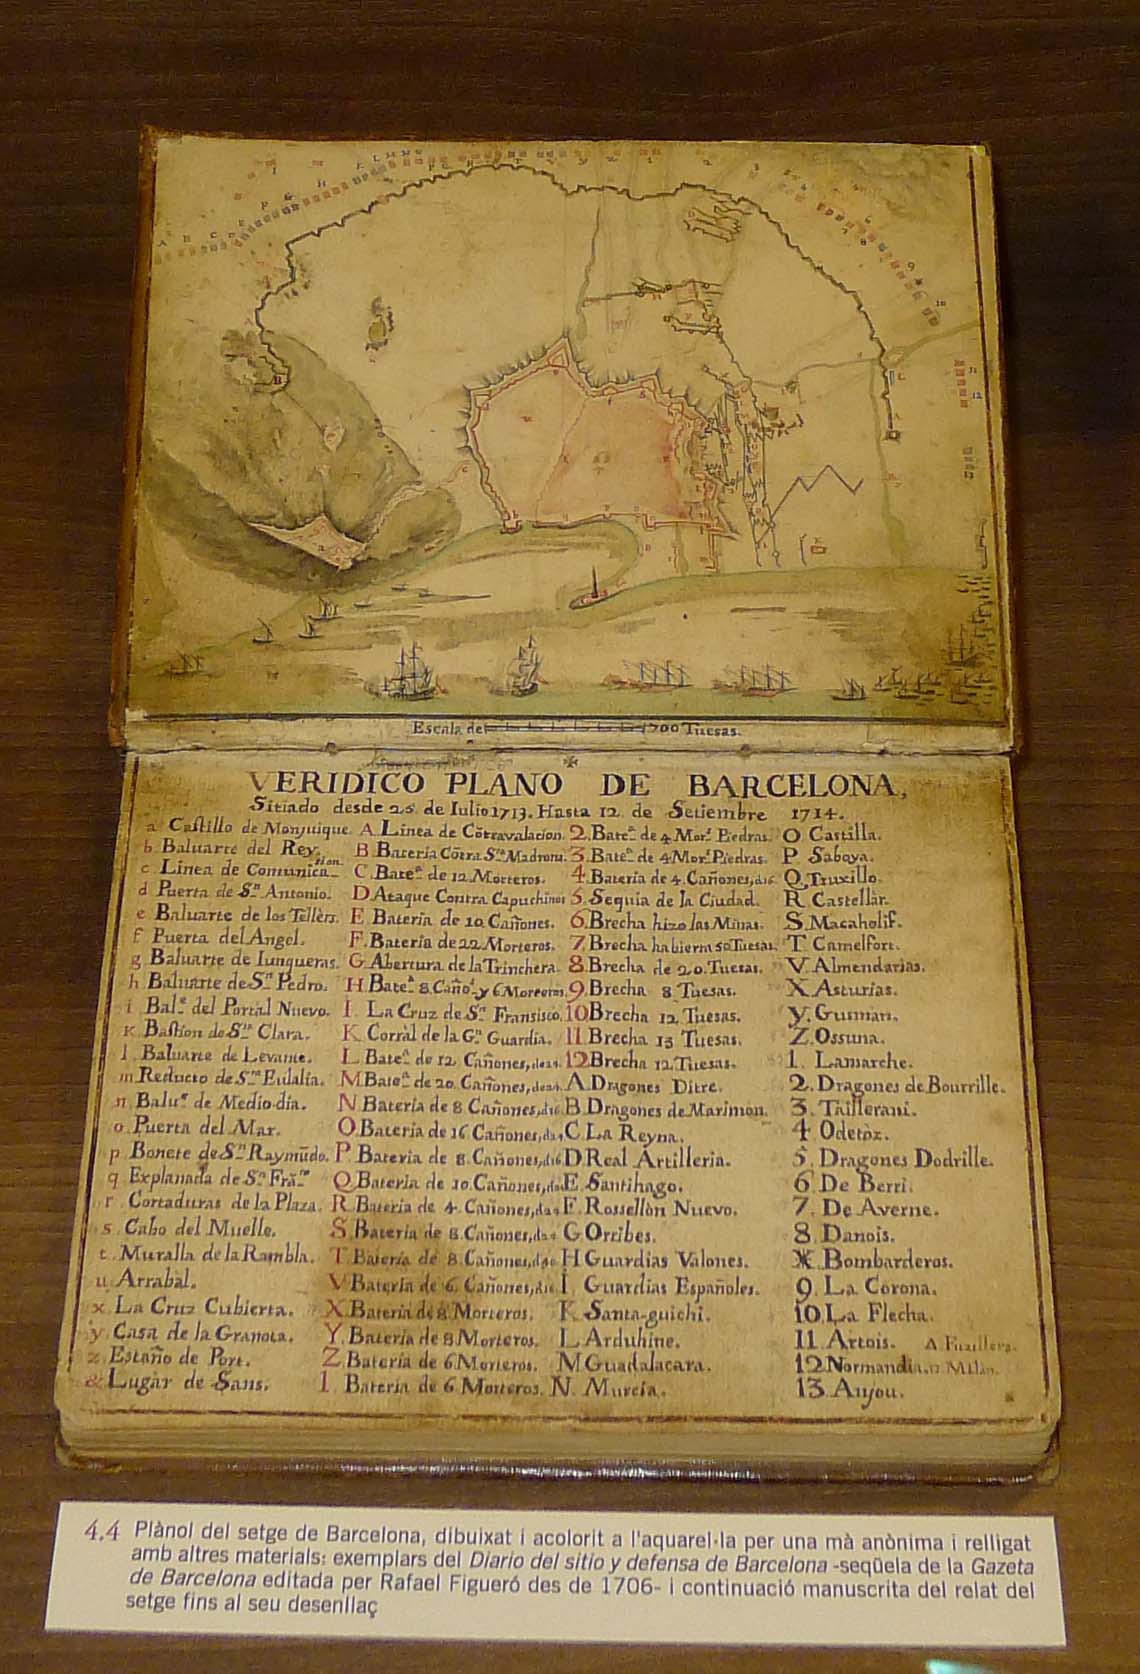 Escala de 1700 Tuesas.
VERIDICO PLANO DE BARCELONA,
Sitiado desde 25. de Iulio 1713. Hasta 12. de Setiembre 1714.
a Castillo de Monjuique.
b Baluarte del Rey.
c Linea de Comunicasion.
d Puerta de Sn. Antonio.
e Baluarte de los Tellèrs.
f Puerta del Angel.
g Baluarte de Iunqueras.
h Baluarte de Sn. Pedro.
i Bale. del Portal Nuevo.
K Bastion de Sta. Clara.
l Baluarte de Levante.
m Reducto de Sta. Eulalia.
n Balue. de Medio-dia.
o Puerta del Mar.
p Bonete de Sn. Raymũdo.
q Explanada de Sn.
r Cortaduras de la Plaza.
s. Cabo del Muelle.
t. Muralla de la Rambla.
u. Arrabàl.
x. La Cruz Cubierta.
y. Casa de la Granota.
z. Estaño de Port.
& Lugàr de Sans.
A. Linea de Cõtravalacion.
B. Bateria Cõtra Sta. Madrona.
C. Batea. de 12. Morteros.
D Ataque Contra Capuchinos
E Bateria de 10 Cañones.
F. Bateria de 22 Morteros.
G. Abertura de la Trinchera.
H. Batea. 8. Caños. y 6 Morteros.
I. La Cruz de Sn. Fransisco.
K Corràl de la Gn. Guardia.
L Batea. de 12 Cañones, de 24.
M. Batea. de 20. Cañones, de 24.
N Bateria de 8 Cañones, d 16
O. Bateria de 16 Cañones, d 24
P. Bateria de 8. Cañones, d 16
Q. Bateria de 10. Cañones,
R Bateria de 4. Cañones, d 24
S. Bateria de 8. Cañones, d 24
T Bateria de 8. Cañones,
V Bateria de 6. Cañones, d 16
X. Bateria de 8 Morteros.
Y. Bateria de 8 Morteros.
Z Bateria de 6 Morteros.
1. Bateria de 6 Morteros.
2. Batea. de 4 Mors. Piedras.
3. Batea. de 4 Mors. Piedras.
4. Bateria de 4 Cañones, d 16
5. Sequia de la Ciudad.
6. Brecha hizo las Minas.
7 Brecha habierra 50 Tuesas.
8. Brecha de 20. Tuesas.
9. Brecha 8 Tuesas.
10 Brecha 12 Tuesas.
11. Brecha 13 Tuesas.
12 Brecha 12 Tuesas.
A. Dragones Ditre.
B Dragones de Marimon.
C. La Reyna.
D. Real Artilleria.
E. Santihago.
F. Rossellòn Nuevo.
G Orribes.
H Guardias Valones.
I Guardias Españoles.
K Santa-guichi.
L Arduhine.
M Guadalacara.
N. Murcia.
O Castilla.
P. Saboya.
Q. Truxillo.
R Castellàr.
S. Macaholif.
T. Camelfort.
V. Almendarias.
X Asturias.
y. Gusman.
Z. Ossuna.
1. Lamarche.
2. Dragones de Bourrille.
3. Taillerant.
4 Odetòz.
5. Dragones Dodrille.
6. De Berri.
7. De Averne.
8. Danois.
Ӿ Bombarderos.
9. La Corona.
10. La Flecha.
11. Artois. A Fuzillers.
12 Normandia. 17 Milàn.
13. Anjou.
4.4 Plànol del setge de Barcelona, dibuixat i acolorit a l'aquarel·la per una mà anònima i relligat
amb altres materials: exemplars del Diario del sitio y defensa de Barcelona -seqüela de la Gazeta
de Barcelona editada per Rafael Figueró des de 1706- i continuació manuscrita del relat del
setge fins al seu desenllaç